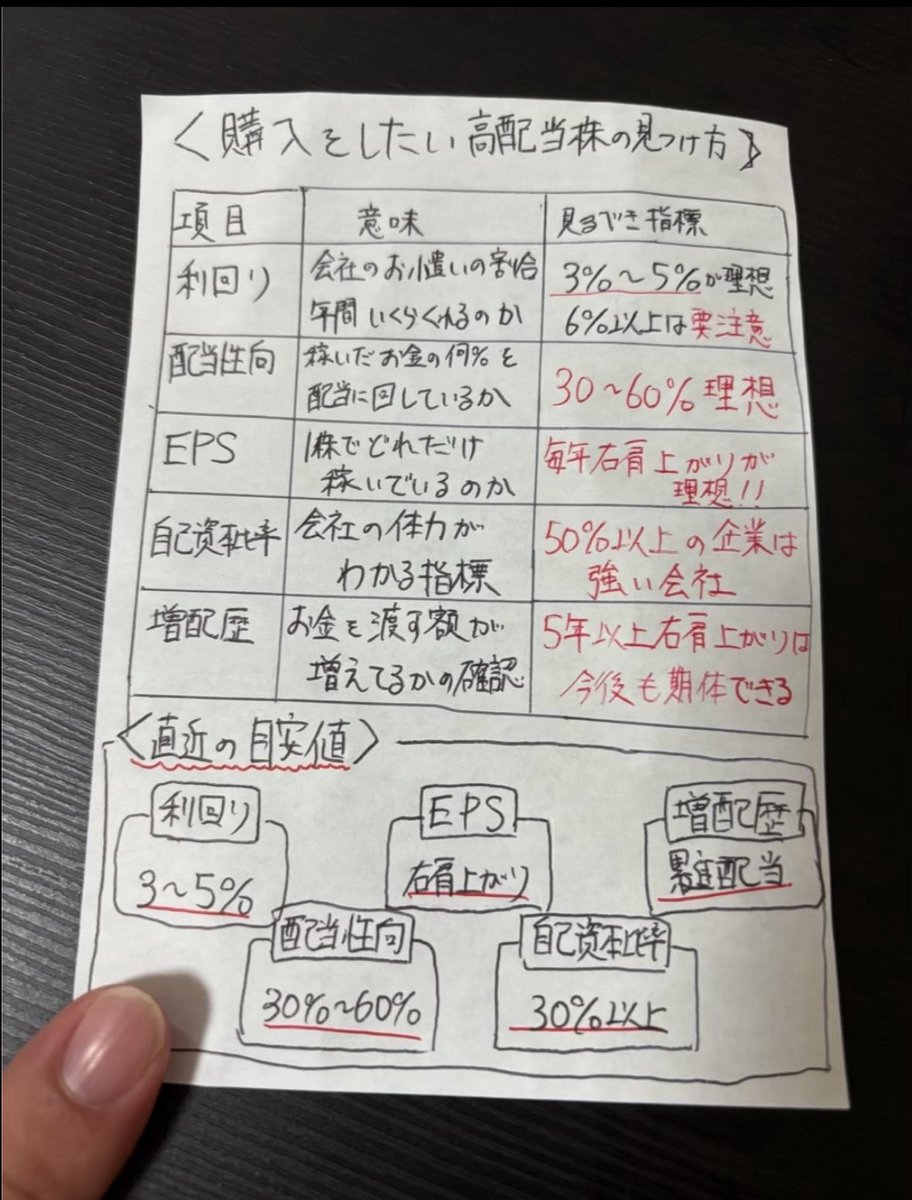 〈購入をしたい高配当株の見つけ方〉
項目 意味 見るべき指標
利回り
会社のお小遣いの割合
年間いくらくれるのか
3%～5%が理想
6%以上は要注意
配当性向
稼いだお金の何%を
配当に回しているか
30～60%理想
EPS
1株でどれだけ
稼いでいるのか
毎年右肩上がりが
理想!!
自己資本比率
会社の体力が
わかる指標
50%以上の企業は
強い会社
増配歴
お金を渡す額が
増えてるかの確認
5年以上右肩上がりは
今後も期体できる
〈直近の目安値〉
利回り
3～5%
EPS
右肩上がり
増配歴
累進配当
配当性向
30%～60%
自己資本比率
30%以上